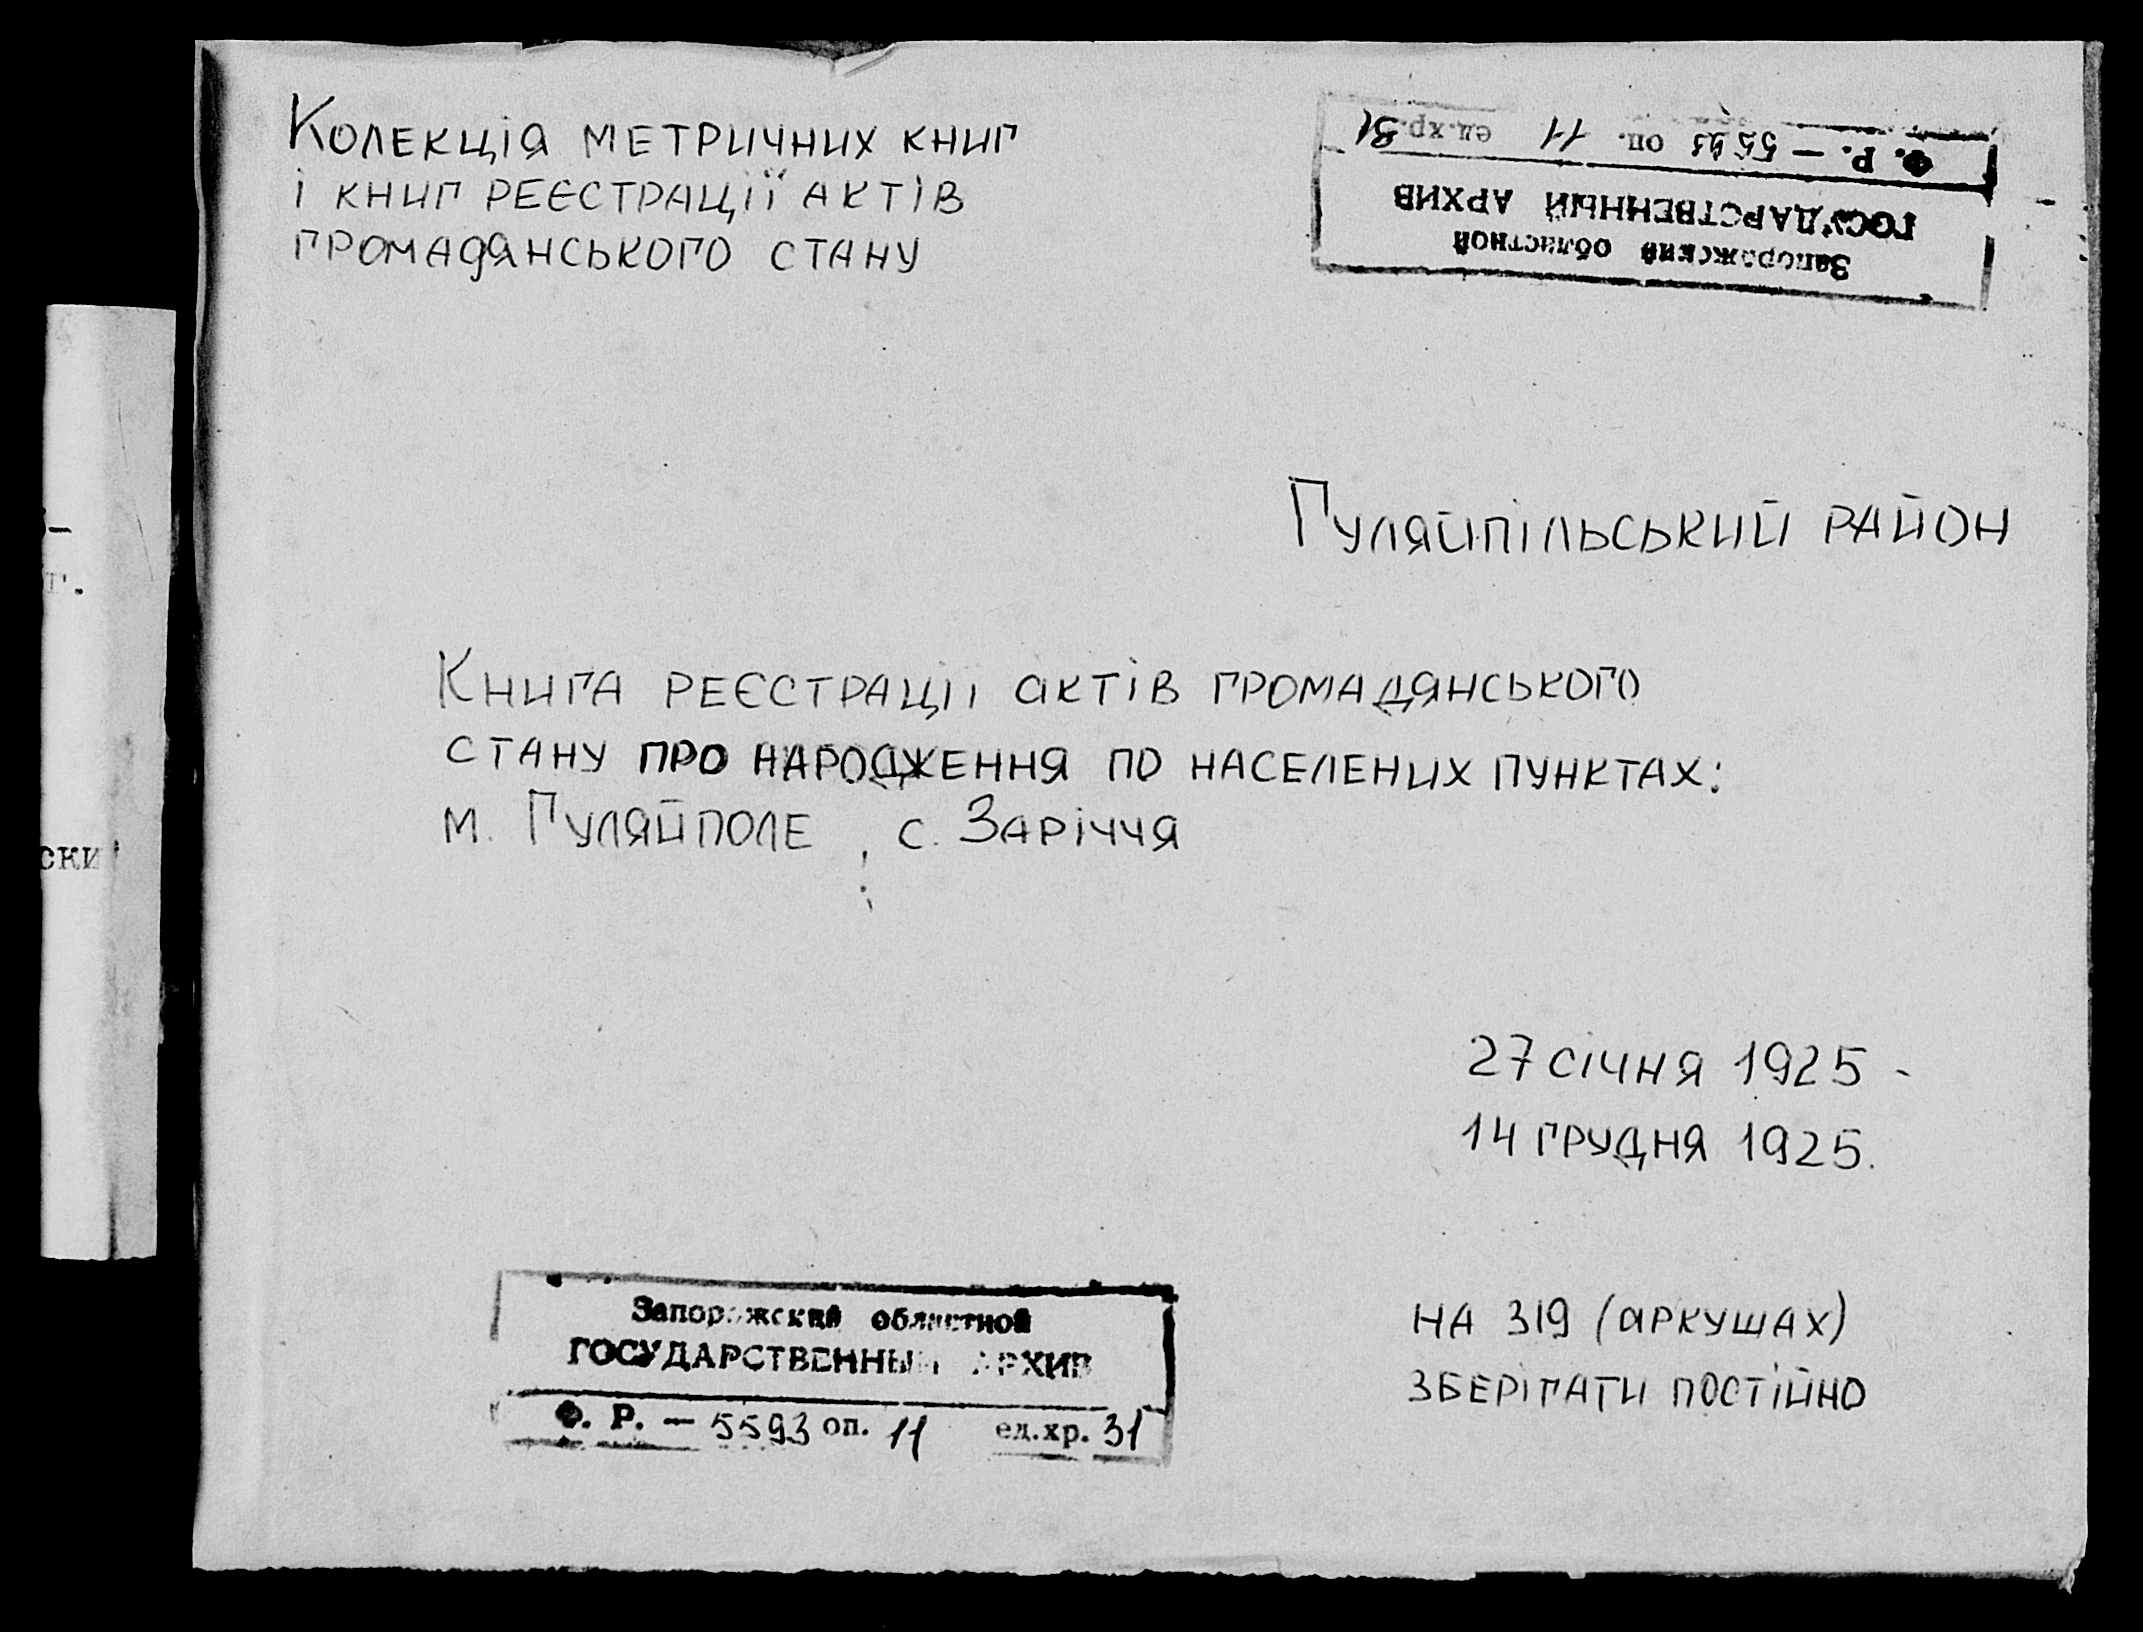 Колекція метричних книг
і книг реєстрації актів
громадянського стану
Ф. Р. — 5593 оп. 11 ед.хр. 31
ГОСУДАРСТВЕННЫЙ АРХИВ
Запорожский областной
Гуляйпільський район
Книга реєстрації актів громадянського
стану про народження по населених пунктах:
м. Гуляйполе, с. Заріччя
27 січня 1925 -
14 грудня 1925.
Запорожский областной
ГОСУДАРСТВЕННЫЙ АРХИВ
Ф. Р. — 5593 оп. 11 ед.хр. 31
на 319 (аркушах)
зберігати постійно